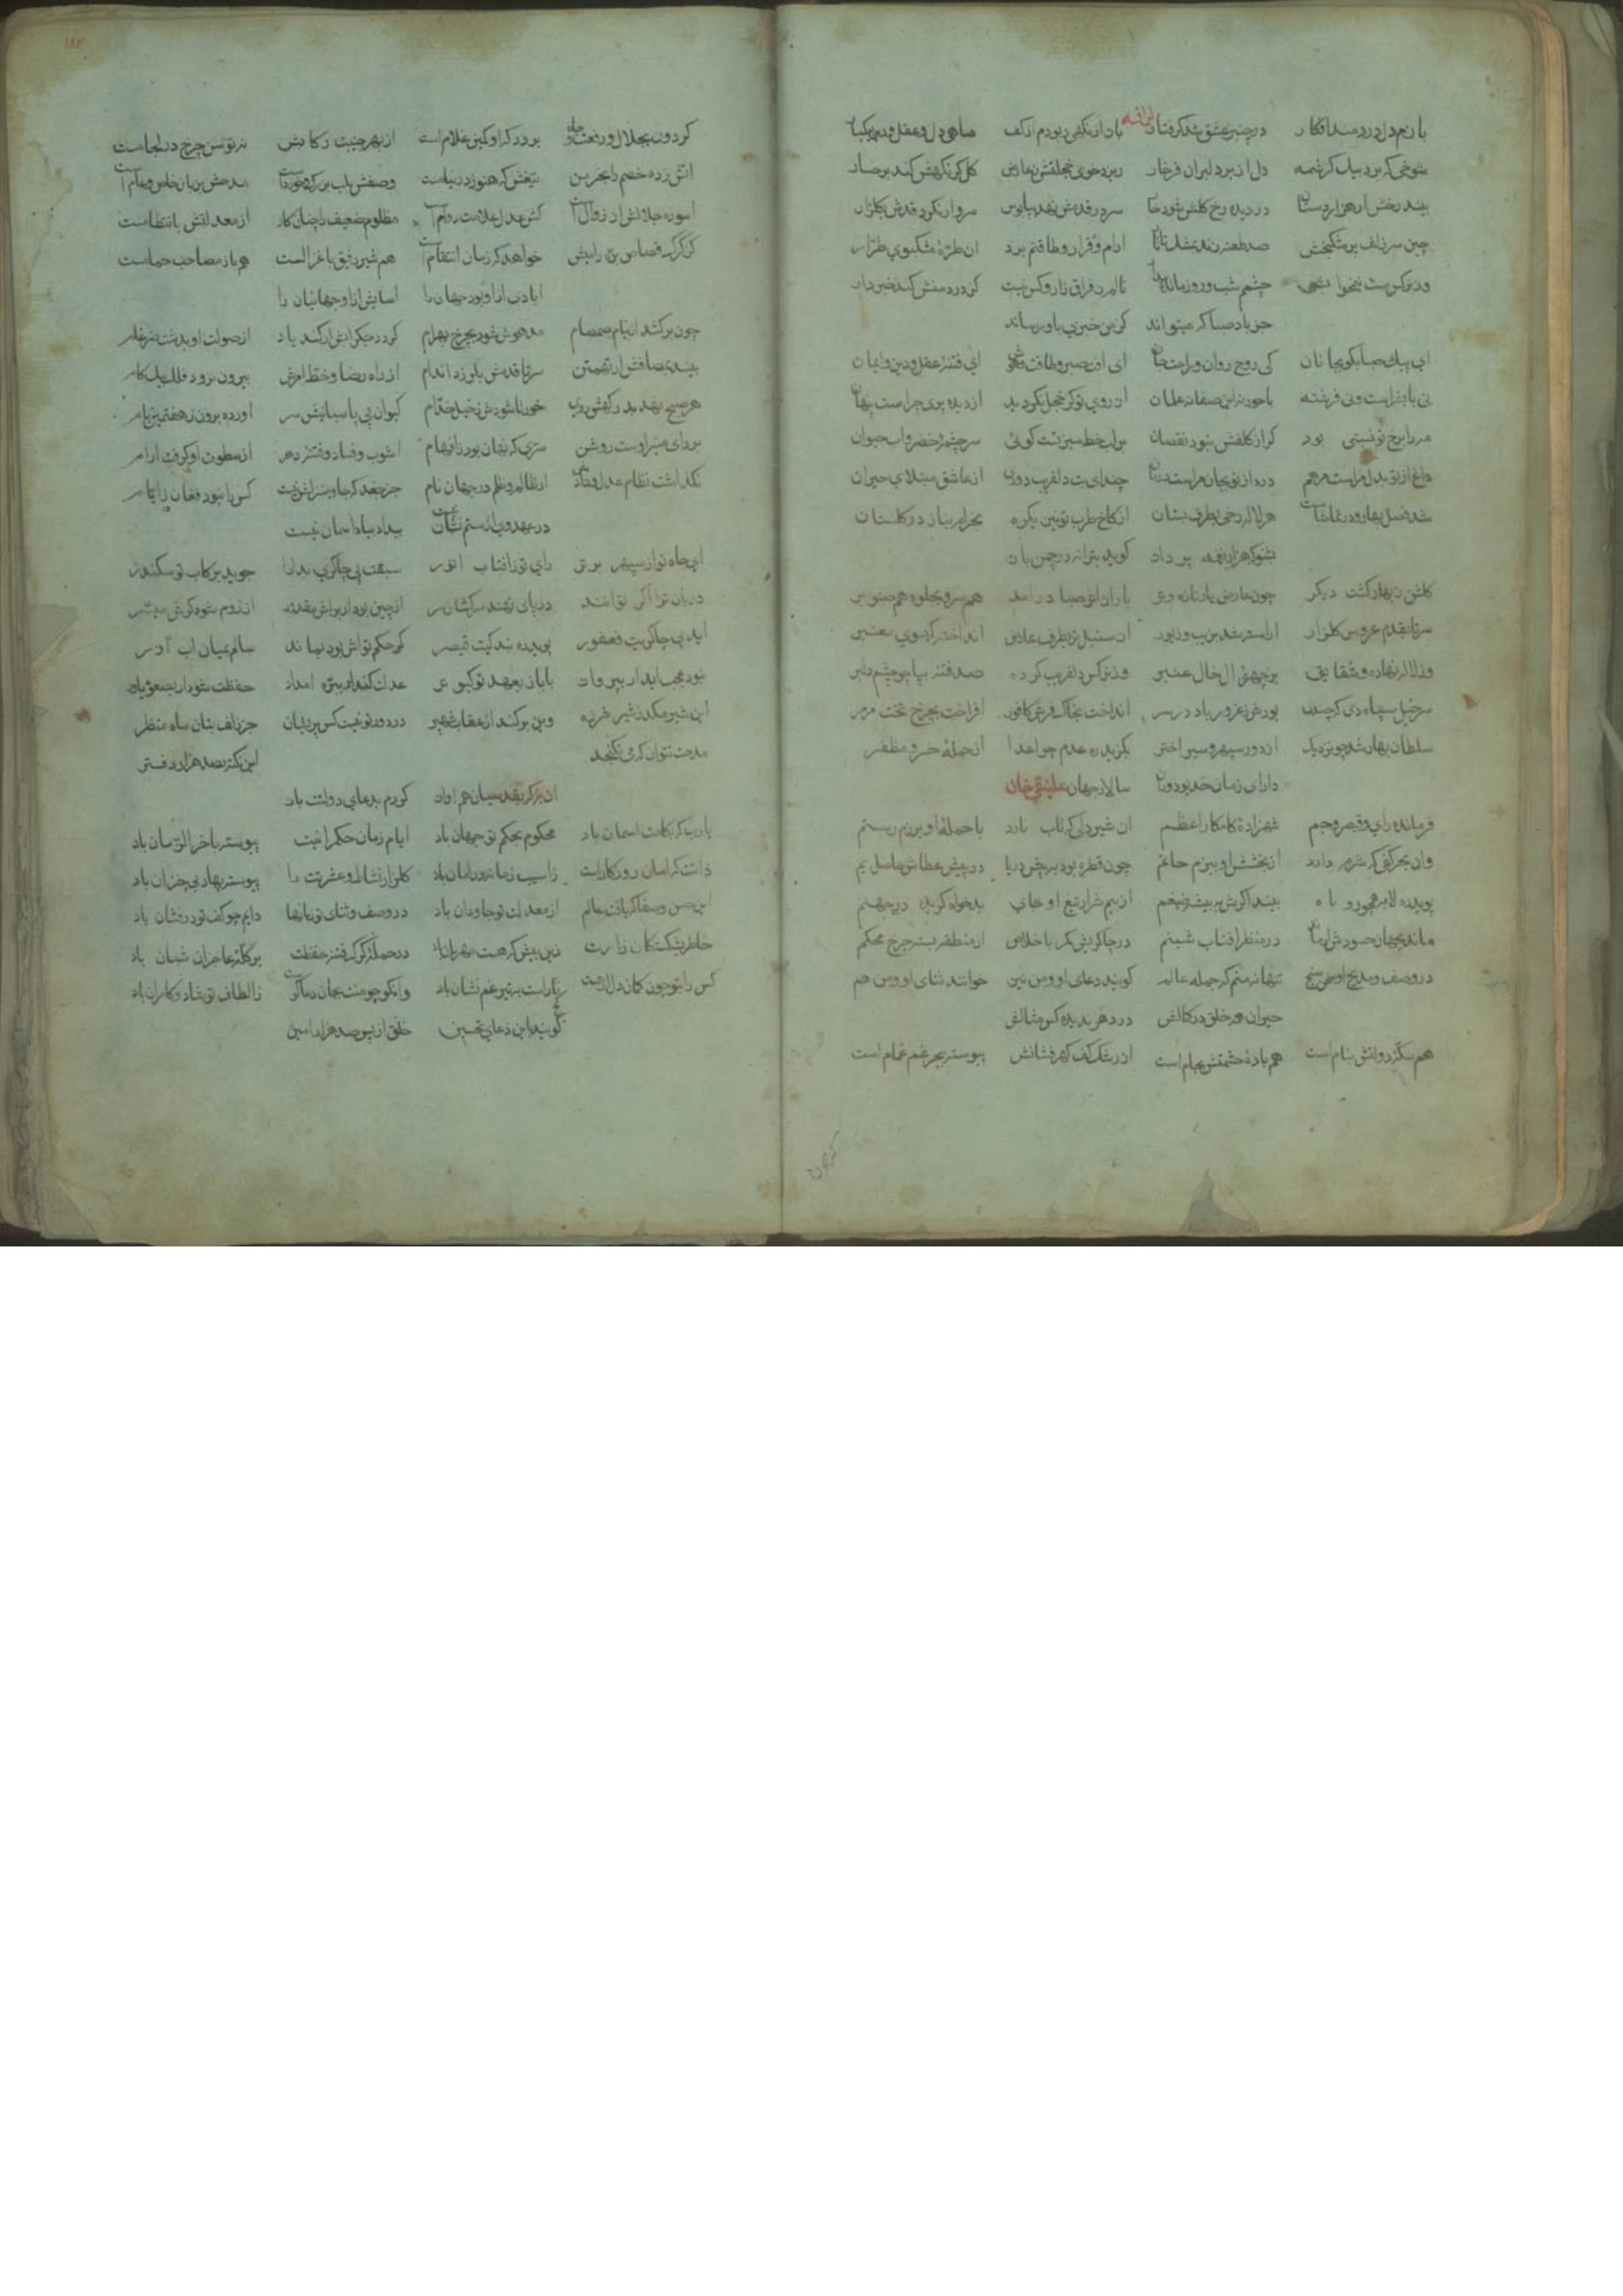 بازم دل دردمند افکار در چنبر عشق شد گرفتار ترانه باز از نکهی ربودم از کف ماهی دل و عقل و دین بیکبار
شوخی که برد بیک کرشمه دل از بر دلبران فرخار ریزد خوی خجلتش ز عارض کل کر نکهش کند برخسار
بیند رخش ار هزار دستان در دیده رخ کلش شود خار سرو قدش نهد بپابوس سرو ار نکرد قدش بکلزار
چین سر زلف پر شکنجش صد طعنه زند بمشک تاتار ارام و قرار و طاقتم برد ان طره مشکبوی طرار
وز نرکس مست نیم خوابش چشمم شب و روز مانده بیدار نالم ز فراق زار و کس نیست کز درد منش کند خبردار
جز باد صبا که میتواند کز من خبری باو رساند
ای پیک صبا بکو بجانان کی روح روان و راحت جان ای افت صبر و طاقت و هوش ای فتنه عقل و دین و ایمان
نی با بشر است و نی فرشته با حور نه این صفا نه غلمان از روی تو کر خجل نکردید از دیده پری چراست پنهان
مه را برخ تو نسبتی بود کر از کلفش نبود نقصان بر لب خط سبزت کوئی سرچشمه خضر و اب حیوان
داغ از تو بدل مراست مرهم درد از تو بجان مراست درمان چند ای بت دلفریب دوری از عاشق مبتلای حیران
شد فصل بهار و در تماشاست هر لاله رخی بطرف بستان از کاخ طرب تو نیز یکره بخرام بیا در کلستان
بشنو که هزار نغمه پرداز کوید بترانه در چمن باز
کلشن ز بهار کشت دیکر چون عارض یار تازه و تر باز از اثر صبا در امد هم سرو بجلوه هم صنوبر
سر تا بقدم عروس کلزار اراسته شد بزیب و زیور از سنبل تر بطرف عارض انداخته کیسوی معنبر
وز لاله نهاده و شقایق بر چهره ال خال عنبر وز نرکس دلفریب کرده صد فتنه بپا چو چشم دلبر
سرخیل سپاه دی که چندی بودش ز غرور باد در سر انداخت بخاک فرش کافور افراخت بچرخ تخت مرمر
سلطان بهار شد چو نزدیک از دور سپهر و سیر اختر بکزید ره عدم چو اعدا از حمله خسرو مظفر
دارای زمان خدیو دوران سالار جهان علینقی خان
فرمانده رای و قیصر و جم شهزاده کامکار اعظم ان شیر دلی که تاب نارد با حمله او برزم رستم
وان بحر کفی که شرم دارد از بخشش او ببزم حاتم چون قطره بود بر چش دریا در پیش عطاش ماحصل یم
پوید ره لابه همچو روباه بیند اکرش به بیشه ضیغم از بیم شرار تیغ او جای بدخواه کزیده در جهنم
ماند بجهان حسودش اما در منظر افتاب شبنم در چاکریش کمر باخلاص از منطقه بسته چرخ محکم
در وصف و مدیح او سخن سنج تنها نه منم که جمله عالم کویند دعای او و من نیز خوانند ثنای او و من هم
حیران همه خلق در کمالش در دهر ندیده کس مثالش
هم سکه دولتش بنام است هم باده حشمتش بجام است از رشک کف کهر فشانش پیوسته بحر غم غمام است
کردون
۱۸۲
کردون بجلال و رفعت و جاه بر در که او کمین غلام است از بهر جنیبت رکابش نه توسن چرخ در لجام است
اتش زده خصم را بخرمن تیغش که هنوز در نیام است وصفش بلب بزرک و خورد است مدحش بزبان خاص و عام است
اسوده جلالش از زوال است کش عدل علامت دوام است مظلوم ضعیف را چنان کار از معدلتش بانتظام است
کز کرک قصاص بره را میش خواهد که زمان انتقام است هم شیر رفیق با غزال است هم باز مصاحب حمام است
ابادی ازو بود جهان را اسایش ازو جهانیان را
چون برکشد از نیام صمصام مدهوش شود بچرخ بهرام کردد جکرابش ار کند یاد از صولت او بدشت ضرغام
بیند بمصافش ار تهمتن سر تا قدمش بلرزد اندام از راه رضا و خط امرش بیرون نرود فلک بیک کام
هر صبح نهد بدرکهش روی خور تا شودش ز خیل خدام کیوان پی پاسبانیش سر اورده برون ز هفتمین بام
بر رای منیر اوست روشن سری که نهان بود ز افهام اشوب و فساد و فتنه دهر از سطوت او کرفت ارام
نکذاشت نظام عدل و دادش از ظالم و ظلم در جهان نام جز جغد که جا و منزلش نیست کس را نبود فغان ز ایام
در عهد وی از ستم نشان نیست بیداد بیاد اسمان نیست
ای جاه تو از سپهر برتر رای تو ز افتاب انور سبقت پی چاکری بدارا جوید برکاب تو سکندر
دربان تو اکر توانند در پای نهند سرکشان سر از چین بود ار براش مقدر از روم شود کرش میسر
اید پی چاکریت فغفور پوید ره بندکیت قیصر کر حکم تواش بود بماند سالم بمیان اب اذر
نبود عجب اید ار بپرواز با باز بعهد تو کبوتر عدلت کند ار ببره امداد حفظت شود ار بصعوه یاور
این شیر مکد ز شیر غرنده وین بر کند از عقاب شهپر در دور تو نیست کس پریشان جز زلف بتان ماه منظر
مدحت نتوان که می نکنجد این نکته بصد هزار دفتر
ان به که بقدسیان هم اواز کردم بدعای دولتت باز
یارب که بکامت اسمان باد محکوم بحکم تو جهان باد ایام زمان حکمرانیت پیوسته باخر الزمان باد
ذاتت که امان روزکار است ز اسیب زمانه در امان باد کلزار نشاط و عشرتت را پیوسته بهار بی خزان باد
این حسن و صفا که یافت عالم از معدلت تو جاودان باد در وصف و ثنای تو زبانها دایم چو کف تو در فشان باد
خاطر شکستکان ز رایت زین بیش که هست مهربان باد در حمله کرک فتنه حفظت بر کله عاجزان شبان باد
کس را بتو چون کمان دل ار نیست با راست به تیر غم نشان باد وانکو چو منت بجان دعاکوست ز الطاف تو شاد و کامران باد
کویند این دعای تحسین خلق از پس صد هزار امین